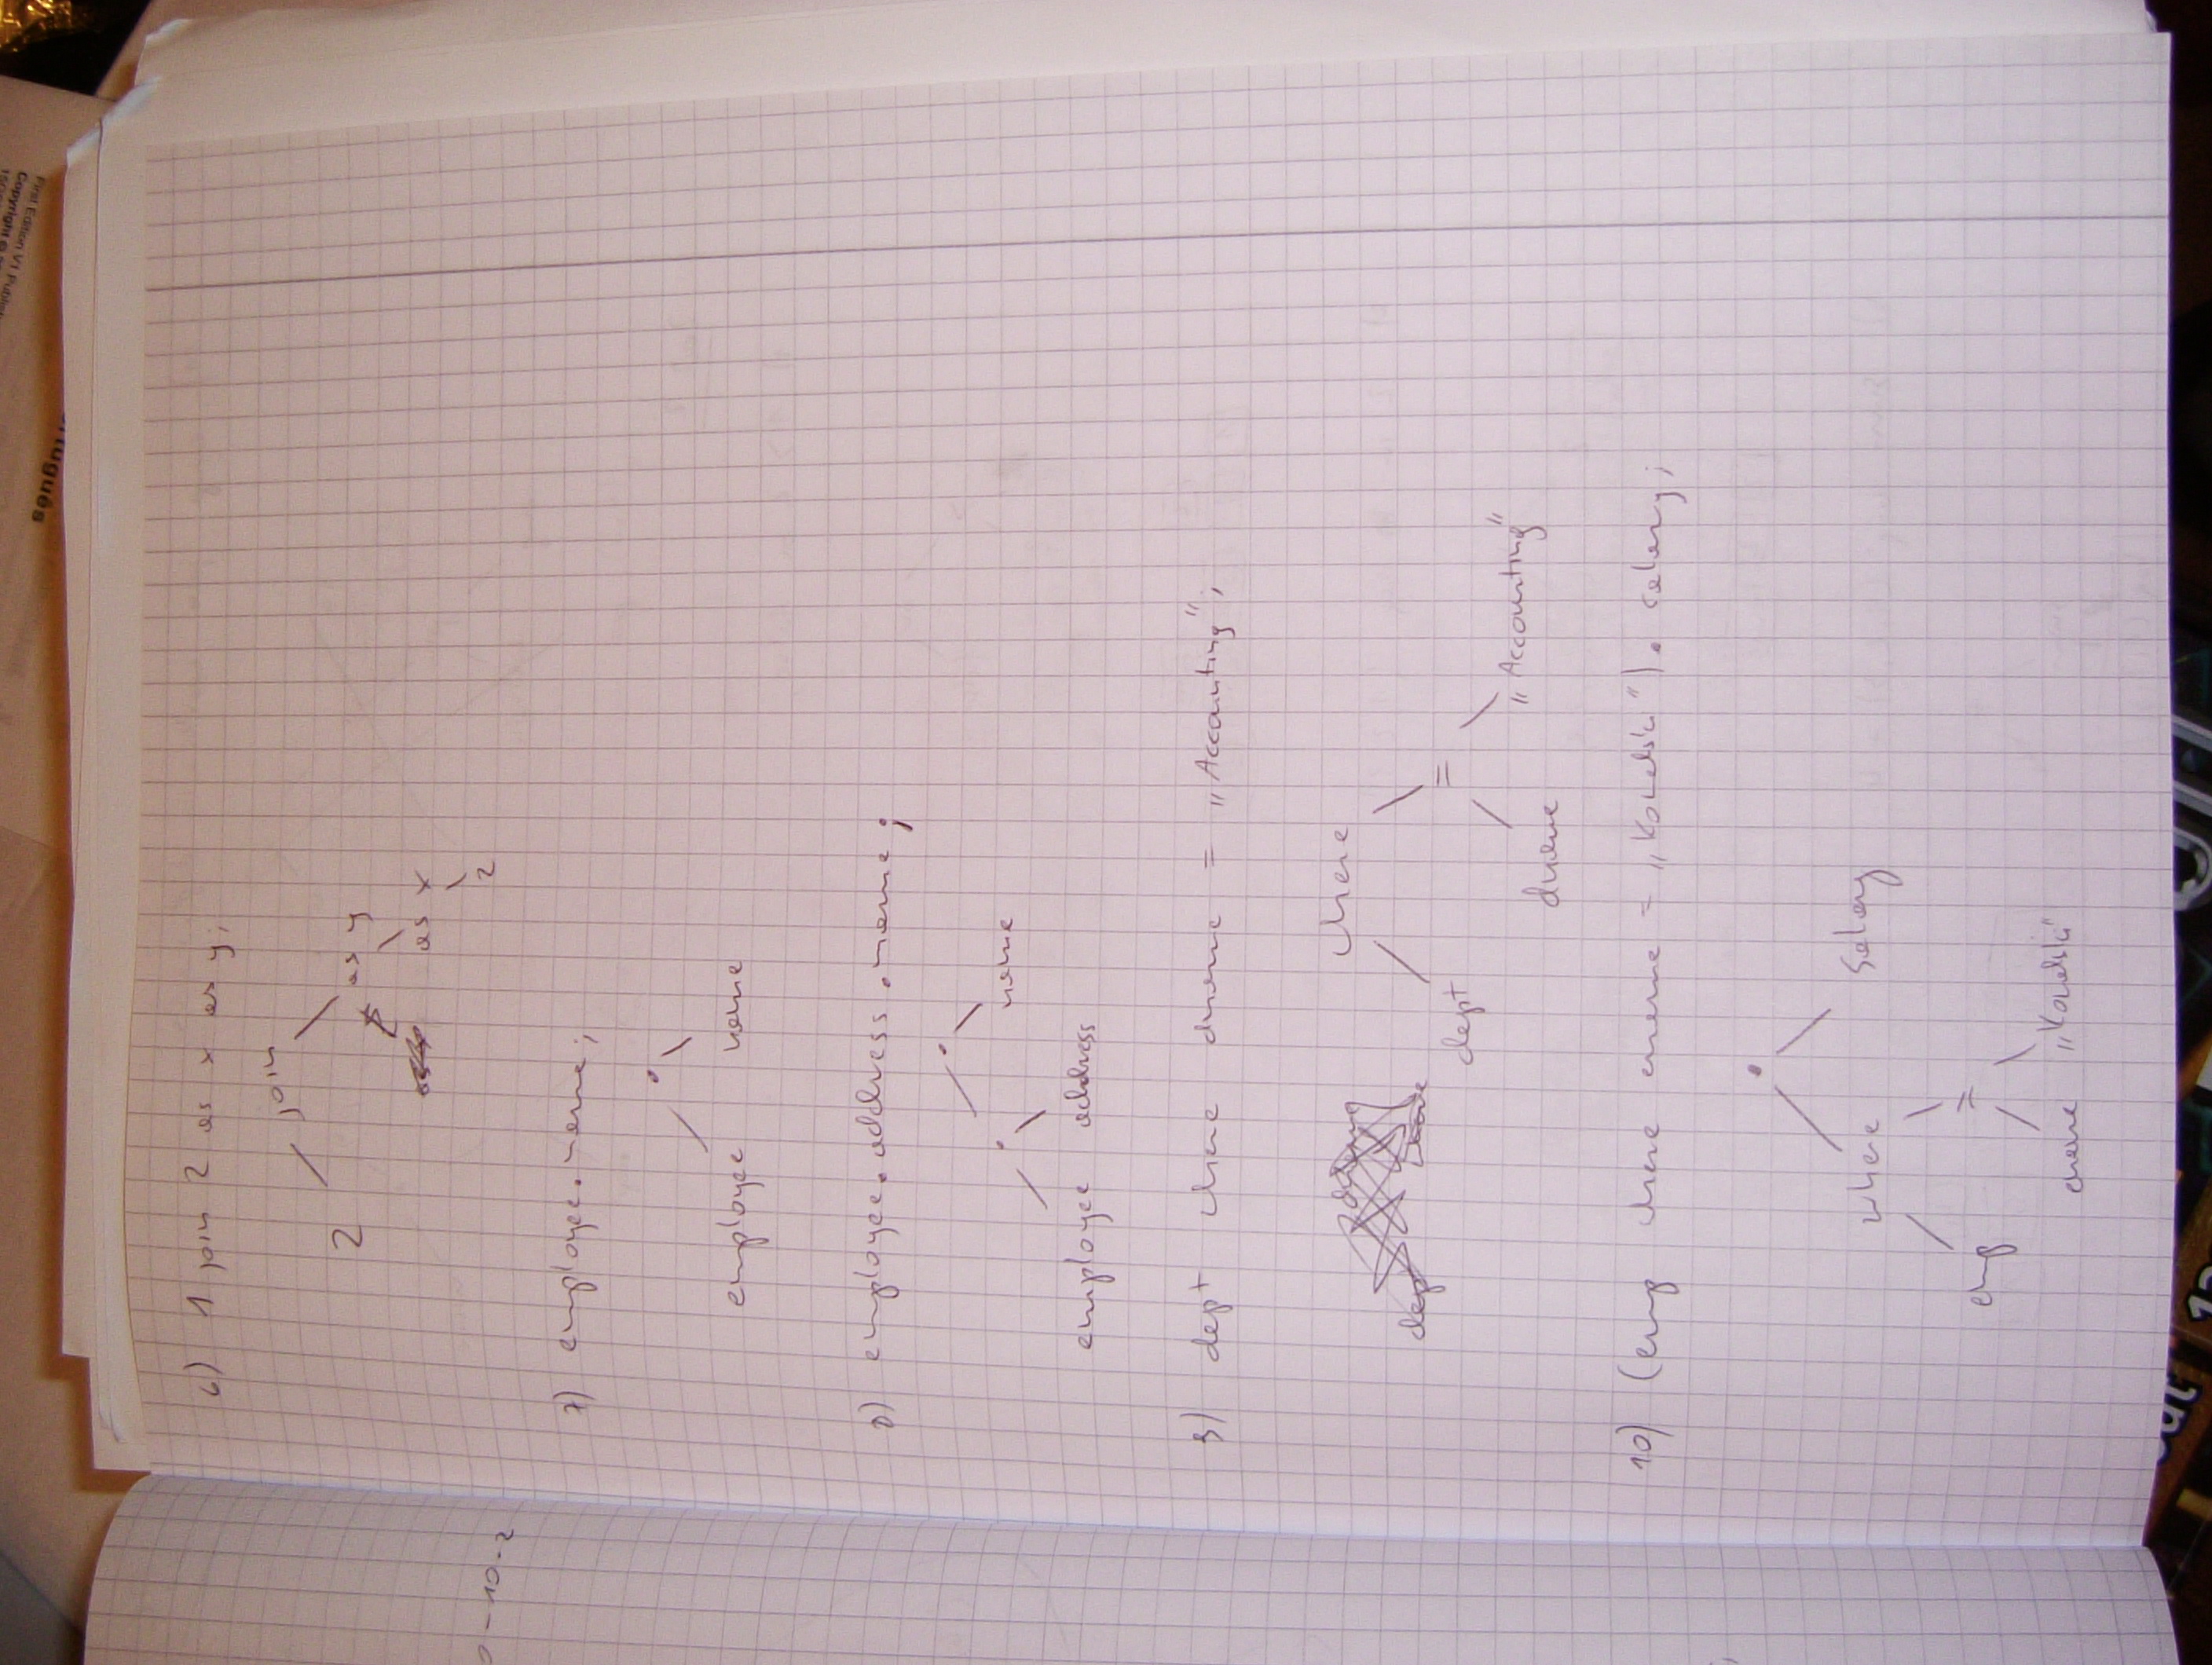 6) 1 join 2 as x as y;
join
2 as y
as x
2
7) employee.name;
.
employee name
8) employee.address.name;
.
. name
employee address
9) dept where dname = „Accounting";
where
dept =
dname „Accounting"
dept
10) (emp where ename = „Kowalski").salary;
.
where salary
emp =
ename „Kowalski"
-10-2
First Edition V1 Publis
Copyright ©